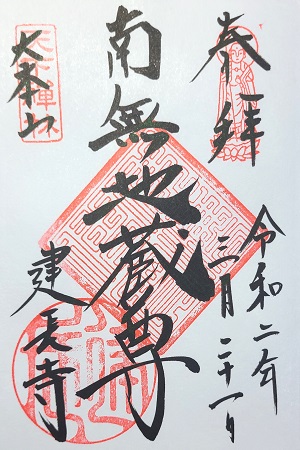 奉拝
令和二年
三月二十一日
南無地蔵尊
大本山
建長寺